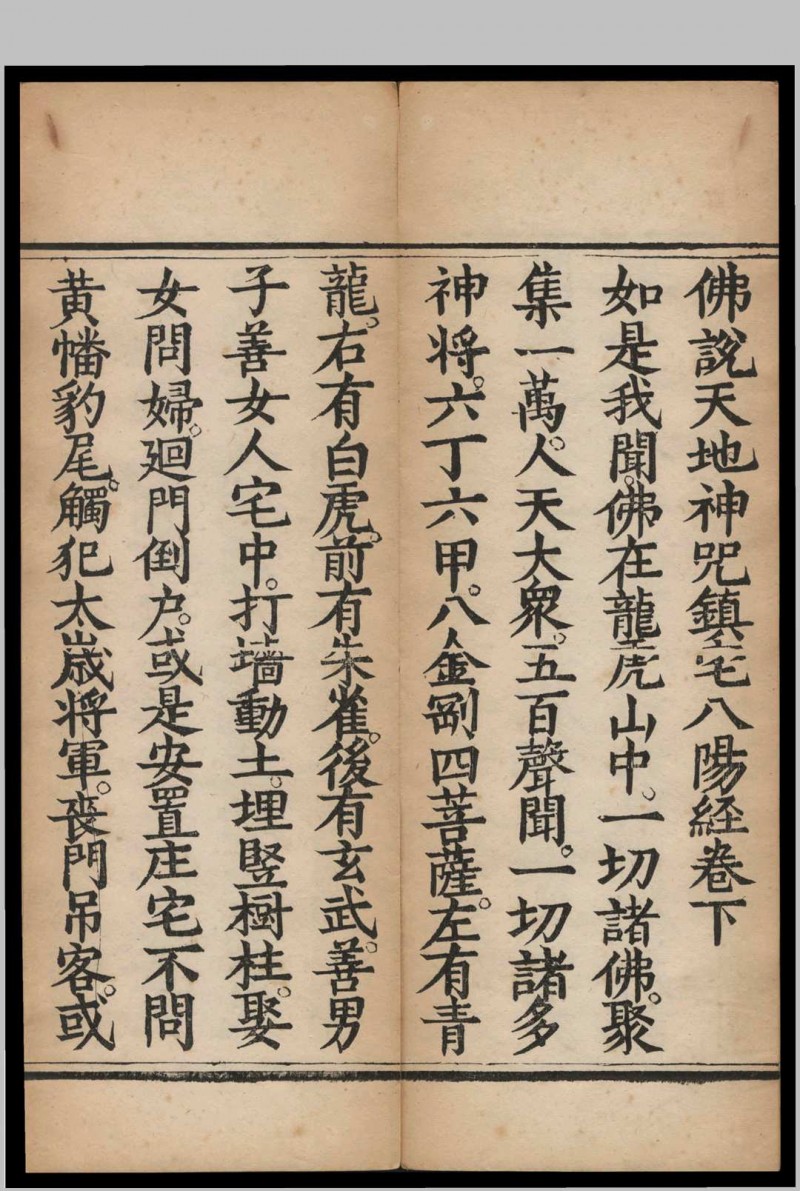 佛說天地神咒鎮宅八陽経卷下
如是我聞。佛在龍虎山中。一切諸佛。聚
集一萬。人天大衆。五百聲聞。一切諸多
神将。六丁六甲。八金剛四菩薩。左有青
龍。右有白虎。前有朱雀。後有玄武。善男
子善女人宅中。打墻動土。埋竪樹柱。娶
女問婦。廻門倒户。或是安置庄宅不問
黄幡豹尾。觸犯太歲将軍。喪門吊客。或